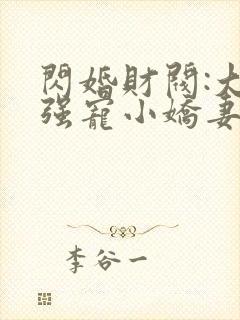 閃婚財閥:大
强寵小嬌妻
李谷一